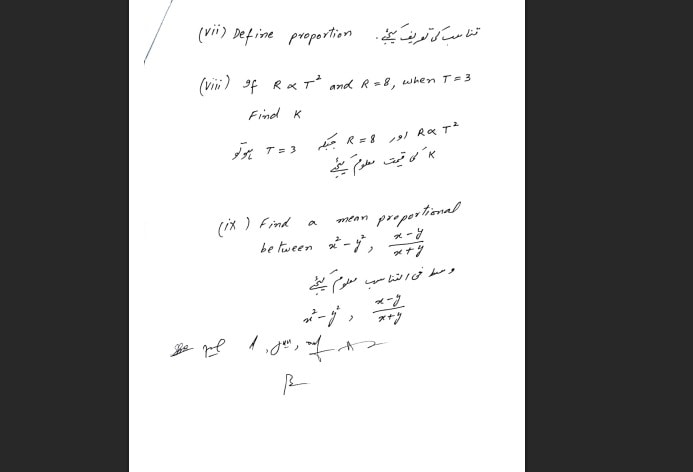 (vii) Define proportion تناسب کی تعریف کیجئے.
(viii) If R ∝ T² and R = 8, when T = 3
Find K
R ∝ T² اور R = 8 جبکہ T = 3 ہو تو
K کی قیمت معلوم کیجئے
(ix) Find a mean proportional
between x² - y², (x-y)/(x+y)
وسط فی التناسب معلوم کیجئے
x² - y², (x-y)/(x+y)